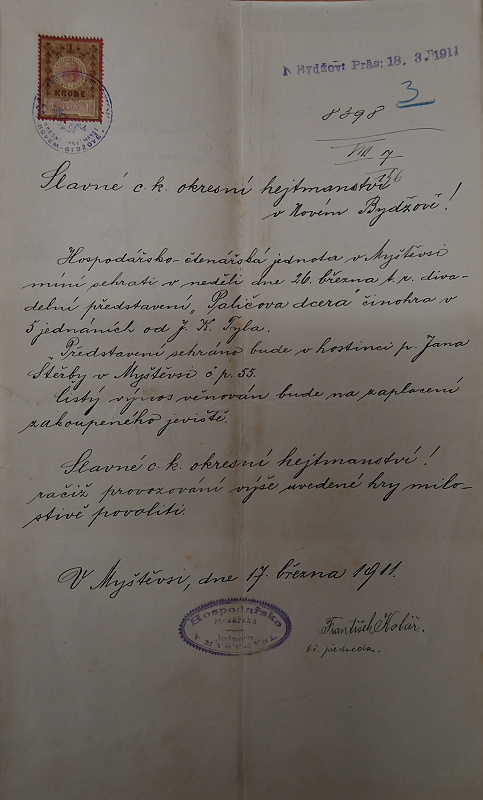 1
KRONE
N Bydžov: Präs: 18. 3. 1911
3
8398
VIII 7
Slavné c. k. okresní hejtmanství
v Novém Bydžově!
Hospodářsko-čtenářská jednota v Myštěvsi
míní sehrati v neděli dne 26. března t. r. diva-
delní představení, "Paličova dcera" činohra v
5 jednáních od J. K. Tyla.
Představení sehráno bude v hostinci p. Jana
Štěrby v Myštěvsi č. p. 55.
Čistý výnos věnován bude na zaplacení
zakoupeného jeviště.
Slavné c. k. okresní hejtmanství!
račiž provozování výše uvedené hry milo-
stivě povoliti.
V Myštěvsi, dne 17. března 1911.
Hospodářsko
Jednota
V MYŠTĚVSI
František Kolář.
předseda.